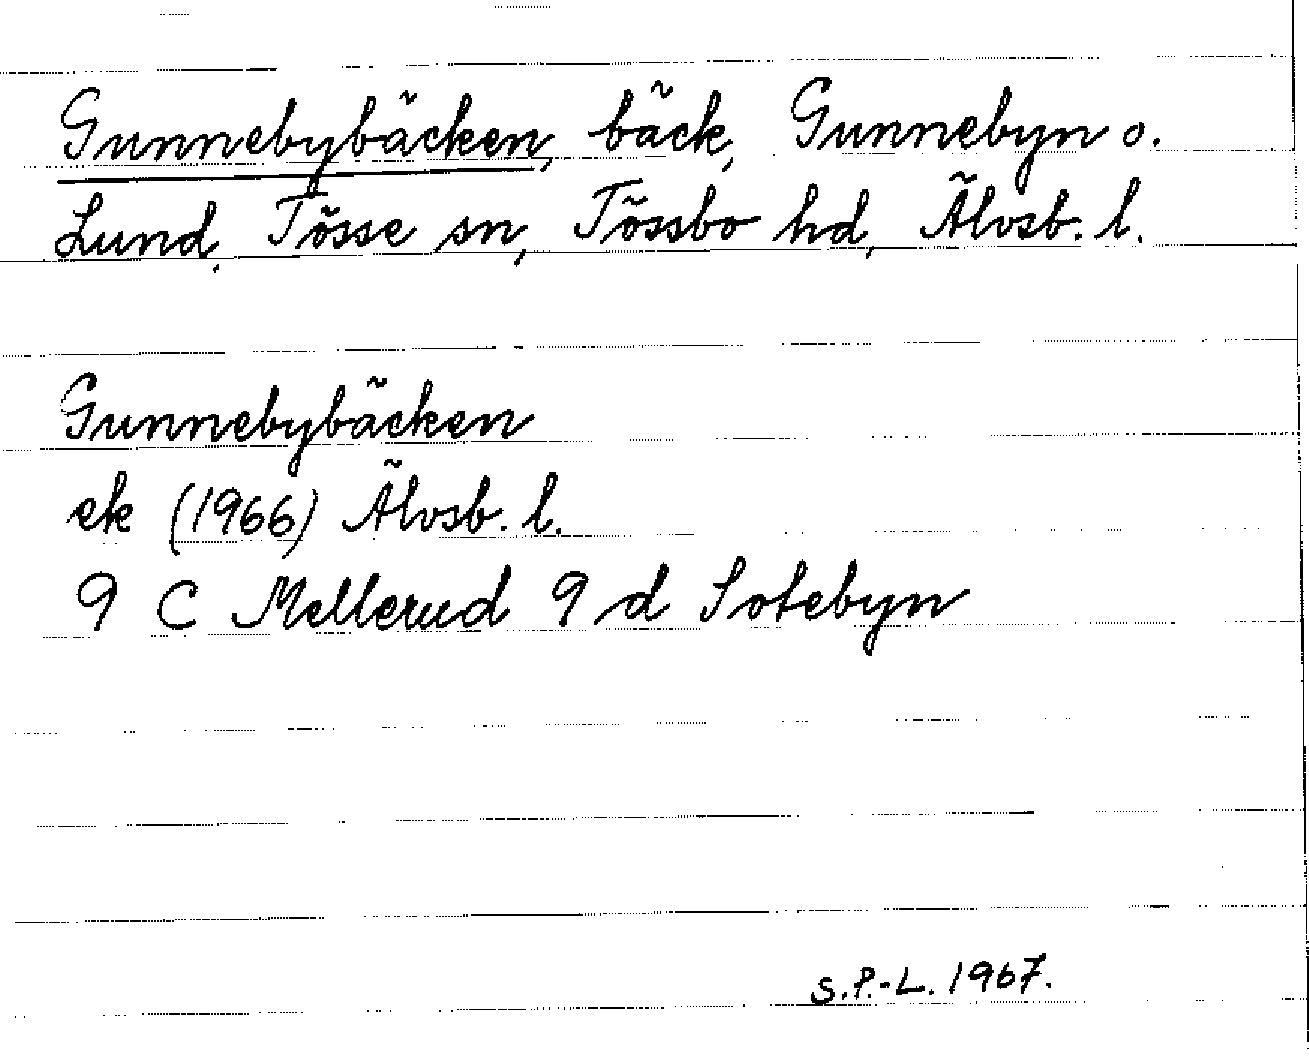 Gunnebybäcken, bäck, Gunnebyn o.
Lund, Tösse sn, Tössbo hd, Älvsb. l.
Gunnebybäcken
ek (1966) Älvsb. l.
9 C Mellerud 9 d Sotebyn
S.P.-L. 1967.